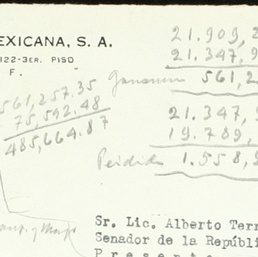 EXICANA, S. A.
122-3ER. PISO
F.
21.909,2
21.347,9
Ganancia 561,2
561,257.35
75,592.48
485,664.87
21.347,9
19.789,
Perdida 1.558,9
Sr. Lic. Alberto Terr
Senador de la Repúbli
P r e s e n t